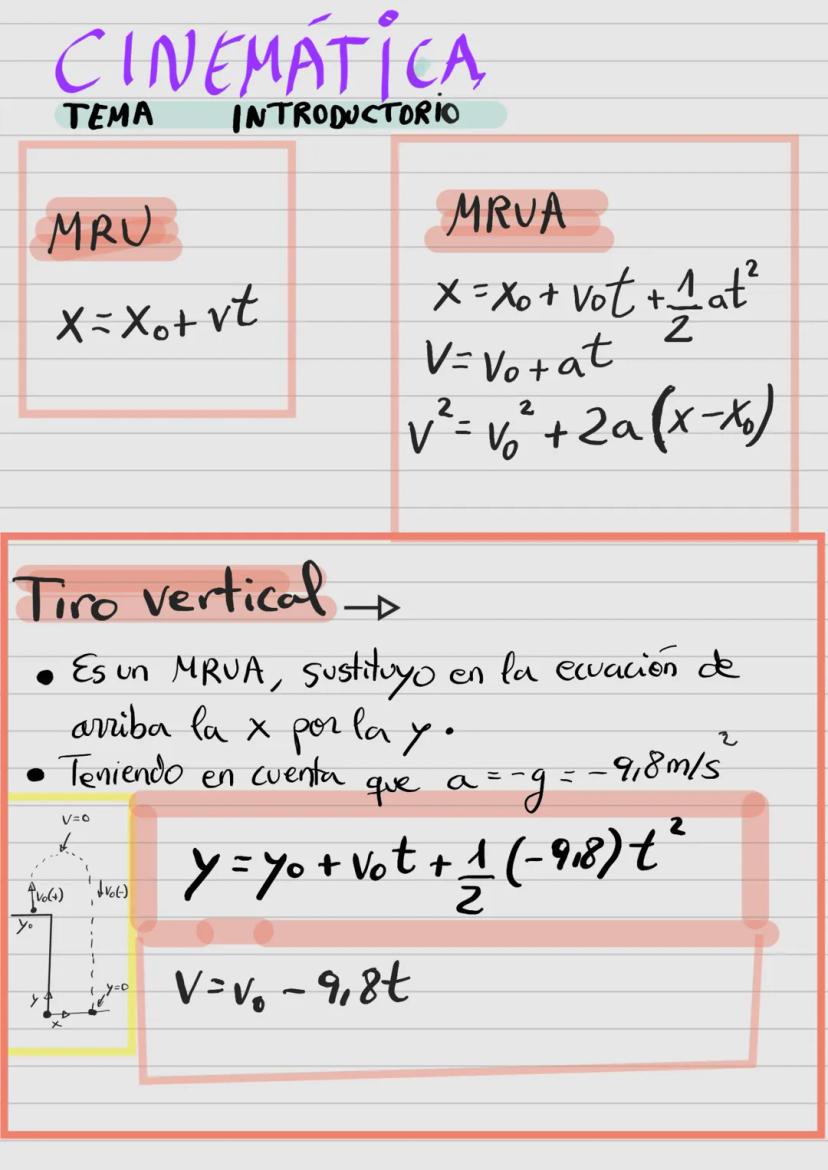 CINEMÁTICA
TEMA INTRODUCTORIO
MRU
x = x₀ + vt
MRUA
x = x₀ + v₀t + 1/2 at²
v = v₀ + at
v² = v₀² + 2a(x - x₀)
Tiro vertical →
• Es un MRUA, sustituyo en la ecuación de
arriba la x por la y.
• Teniendo en cuenta que a = -g = -9,8 m/s²
v=0
v₀(+)
↓v₀(-)
y₀
y
x
y=0
y = y₀ + v₀t + 1/2 (-9,8)t²
v = v₀ - 9,8t